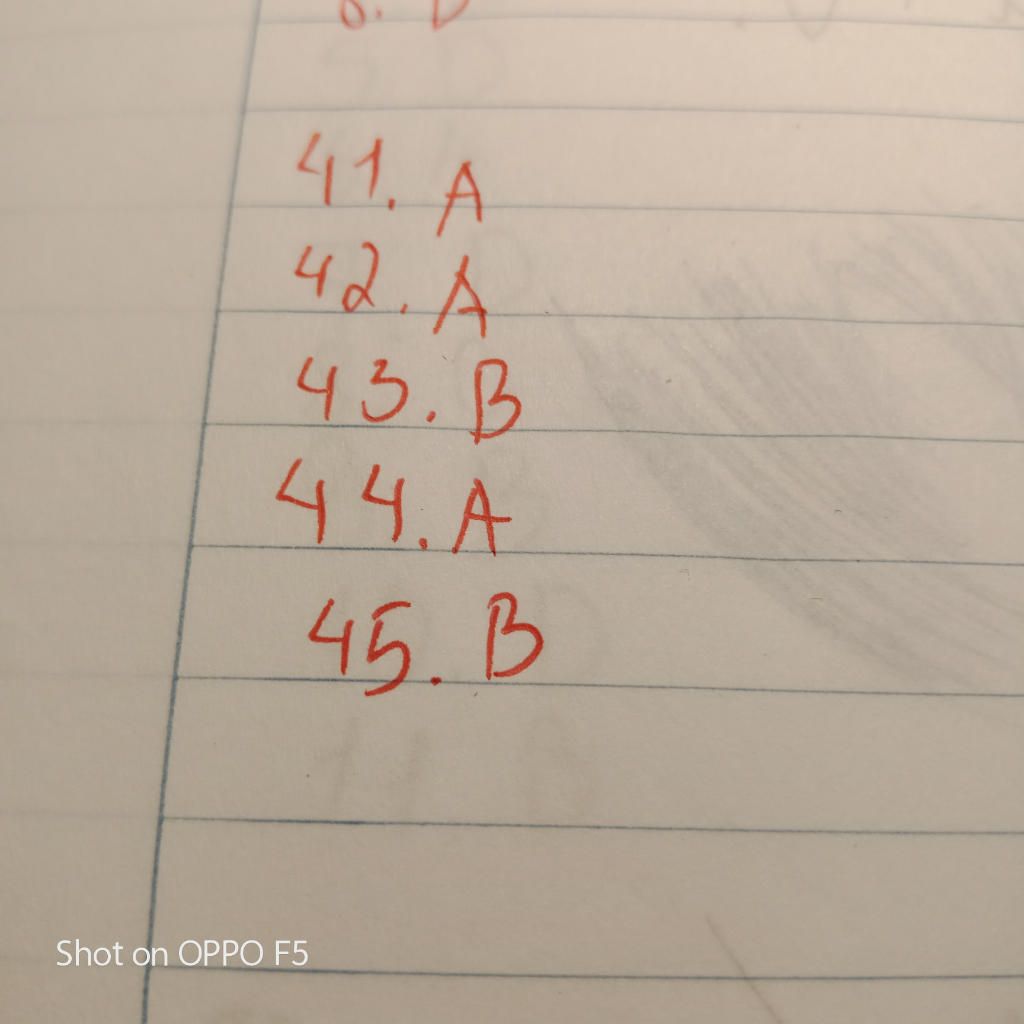 41. A
42. A
43. B
44. A
45. B
Shot on OPPO F5